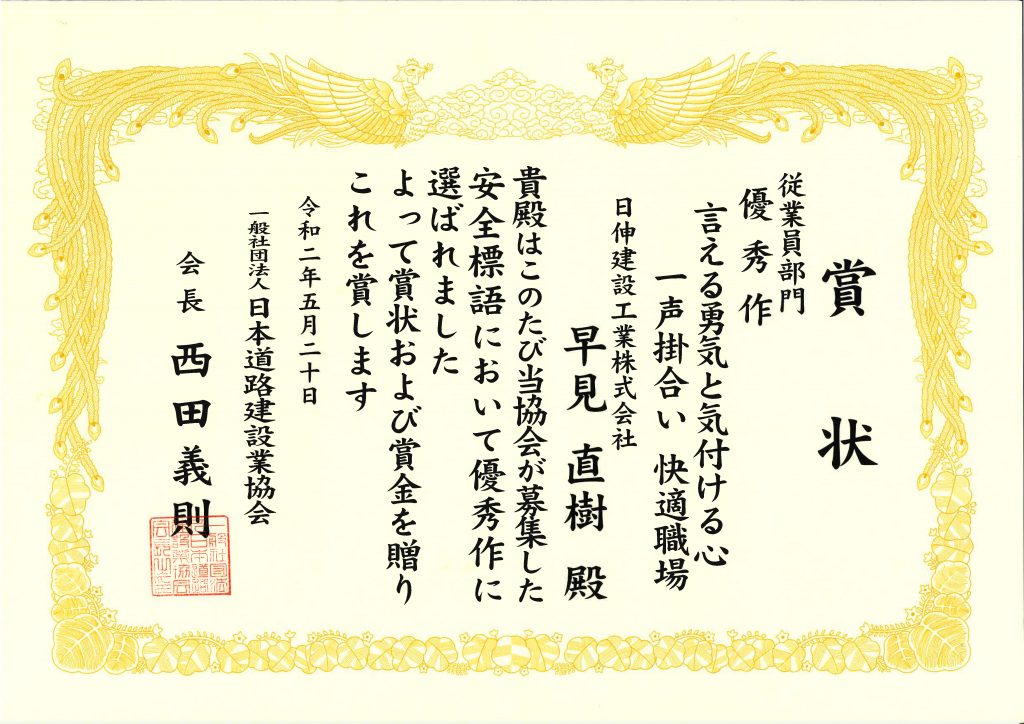 賞状
従業員部門
優秀作
言える勇気と気付ける心
一声掛合い 快適職場
日伸建設工業株式会社
早見 直樹 殿
貴殿はこのたび当協会が募集した
安全標語において優秀作に
選ばれました
よって賞状および賞金を贈り
これを賞します
令和二年五月二十日
一般社団法人 日本道路建設業協会
会長 西田義則